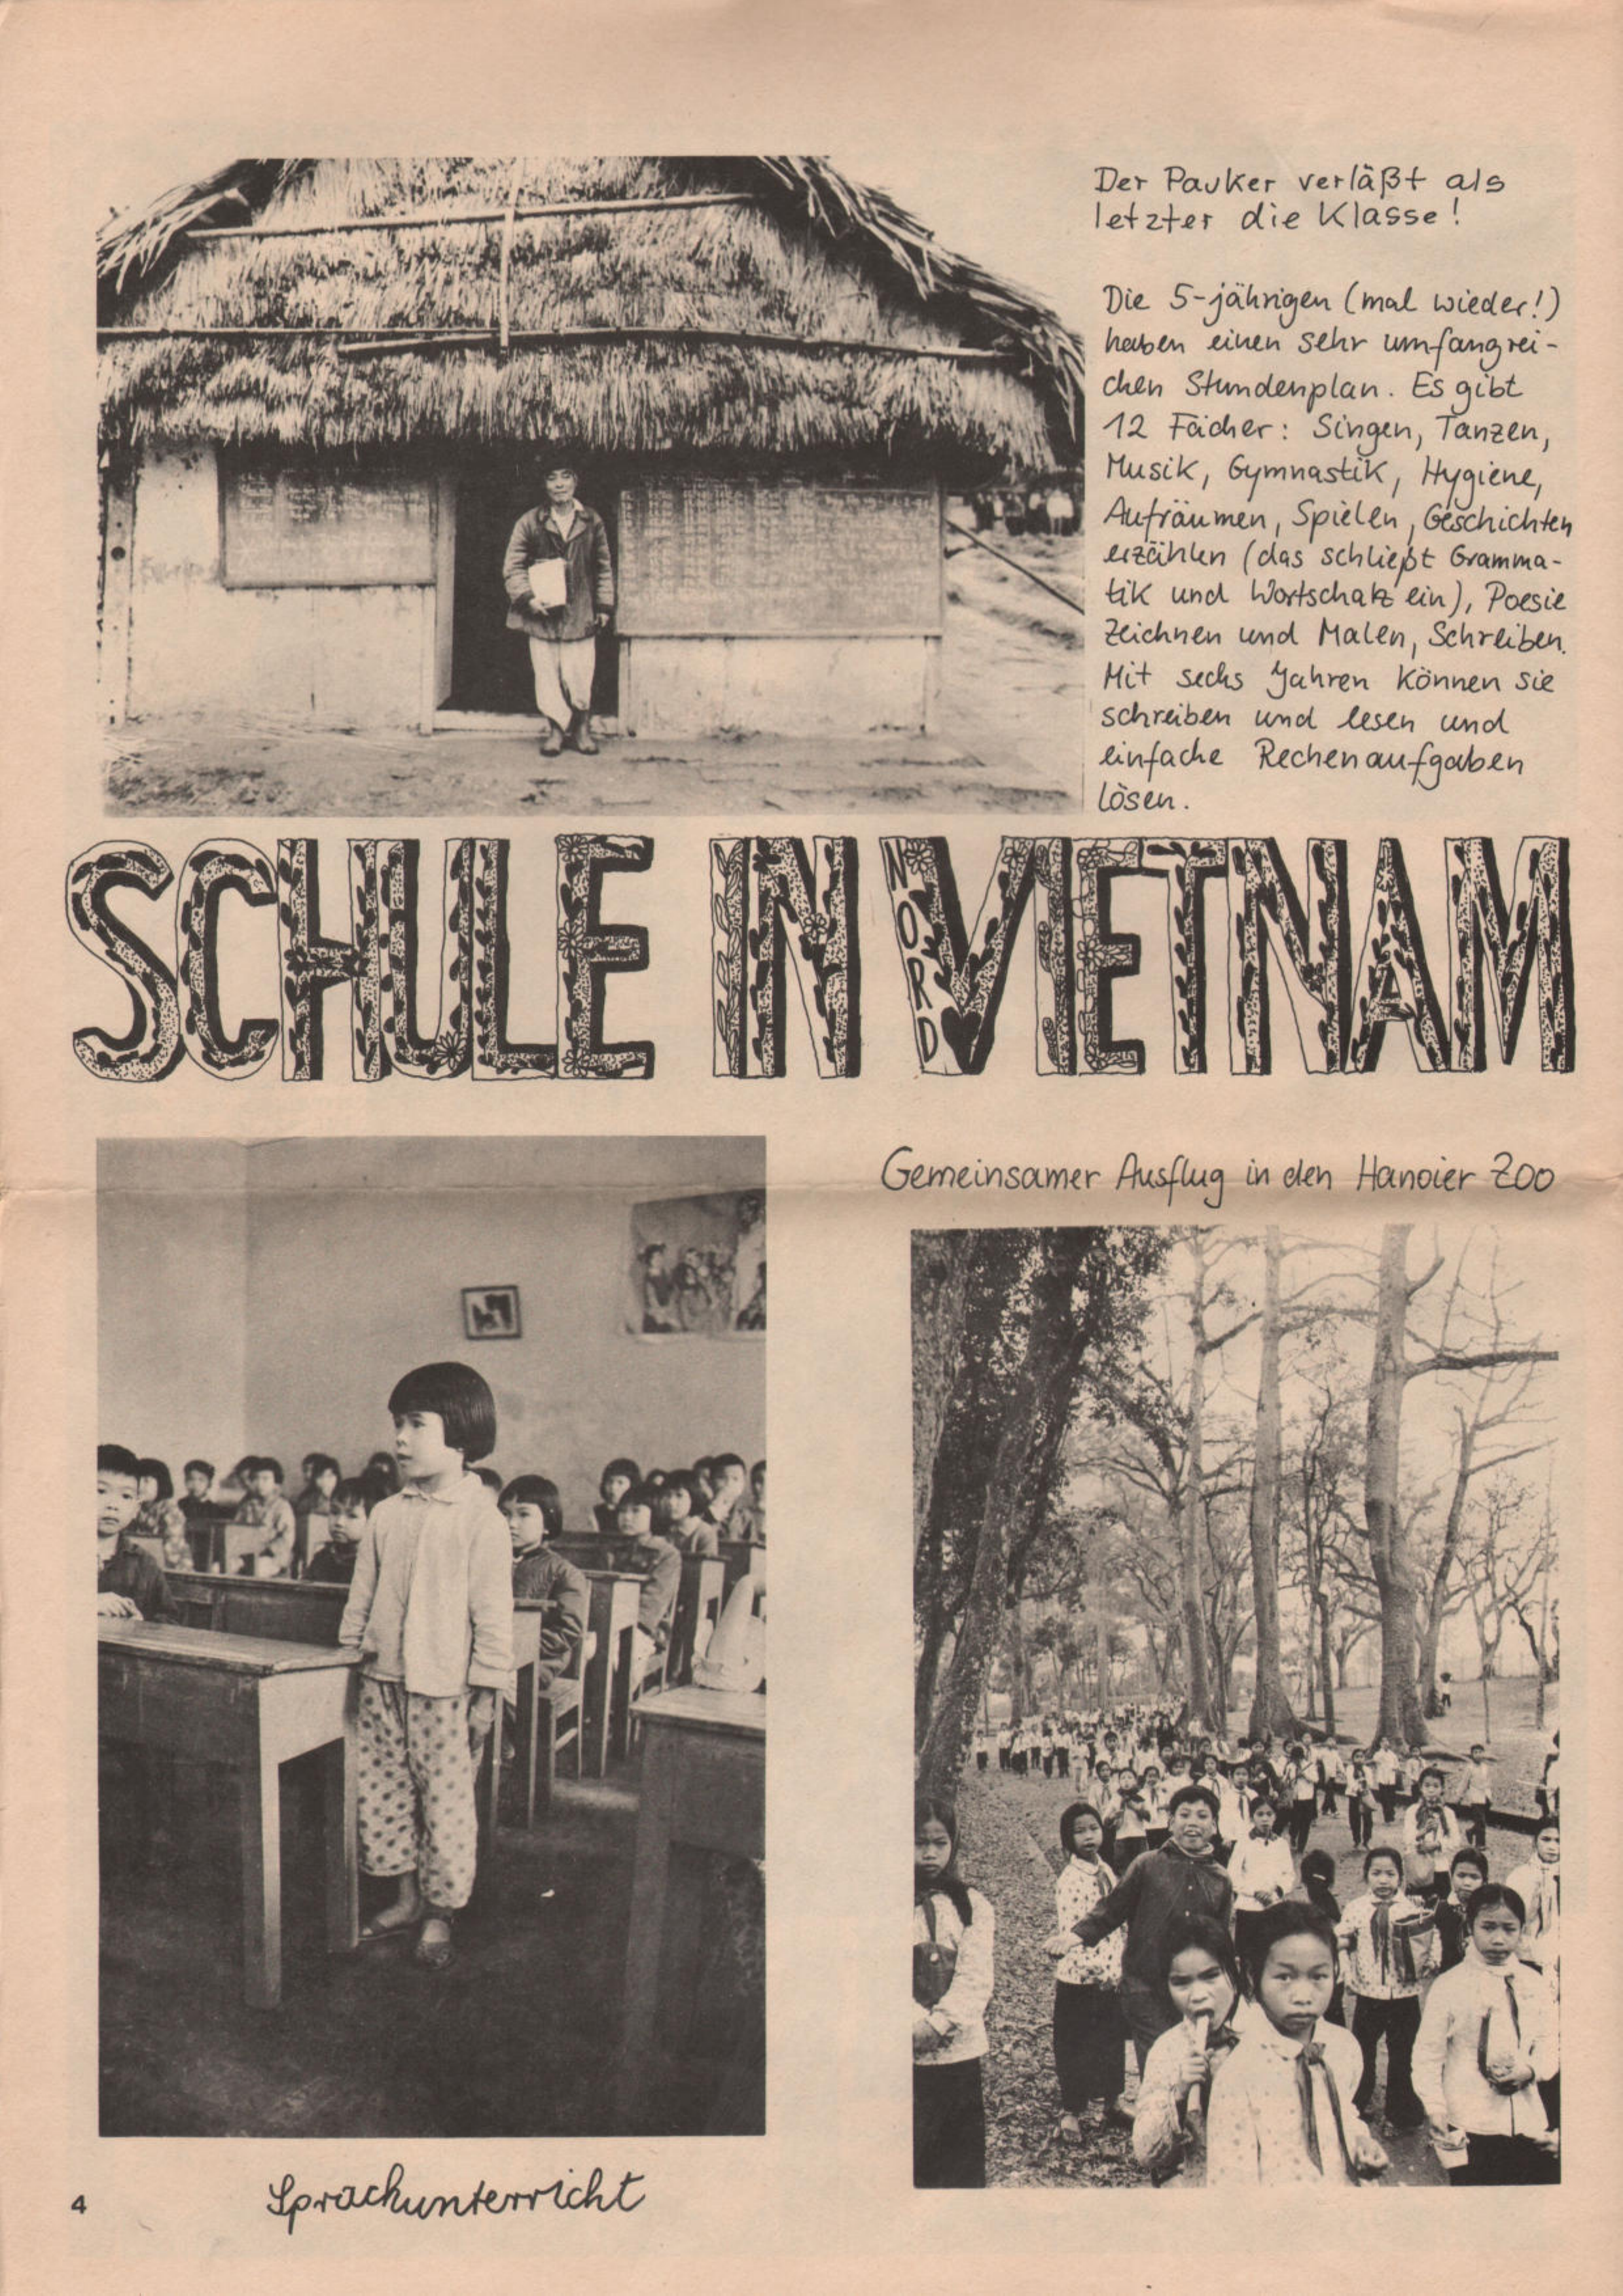 Der Pauker verläßt als
letzter die Klasse!
Die 5-jährigen (mal wieder!)
haben einen sehr umfangrei-
chen Stundenplan. Es gibt
12 Fächer: Singen, Tanzen,
Musik, Gymnastik, Hygiene,
Aufräumen, Spielen, Geschichten
erzählen (das schließt Gramma-
tik und Wortschatz ein), Poesie
Zeichnen und Malen, Schreiben.
Mit sechs Jahren können sie
schreiben und lesen und
einfache Rechenaufgaben
lösen.
SCHULE IN NORD VIETNAM
Gemeinsamer Ausflug in den Hanoier Zoo
Sprachunterricht
4